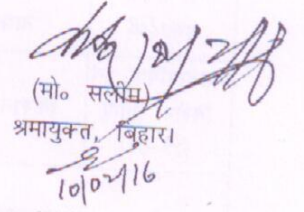 (मो० सलीम)
श्रमायुक्त, बिहार।
10/02/16